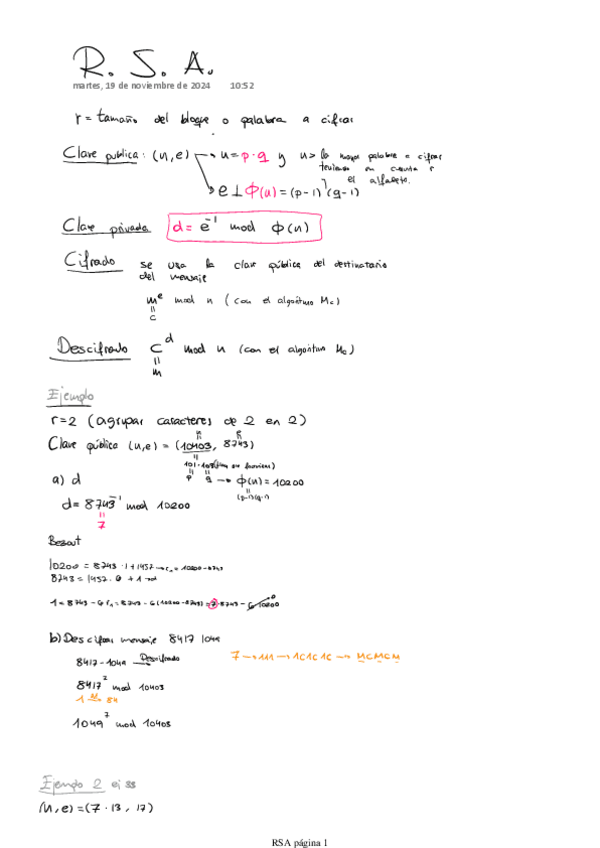 R. S. A.
martes, 19 de noviembre de 2024 10:52
r = tamaño del bloque o palabra a cifrar
Clave publica: (n, e) → n = p·q y n > la mayor palabra a cifrar
teniendo en cuenta r
el alfabeto.
e ⊥ Φ(n) = (p-1)(q-1)
Clave privada d = e⁻¹ mod Φ(n)
Cifrado se usa la clave pública del destinatario
del mensaje
mᵉ mod n (con el algoritmo Mc)
=
c
Descifrado cᵈ mod n (con el algoritmo Mc)
=
m
Ejemplo
r=2 (agrupar caracteres de 2 en 2)
n e
Clave pública (n,e) = (10403, 8743)
101·103
a) d p q → Φ(n) = 10200
(p-1)(q-1)
d = 8743⁻¹ mod 10200
=
7
Bezout
10200 = 8743 · 1 + 1457 → r₁ = 10200 - 8743
8743 = 1457 · 6 + 1
1 = 8743 - 6 r₁ = 8743 - 6(10200 - 8743) = 7·8743 - 6·10200
b) Descifrar mensaje 8417 1049
8417 - 1049 Descifrado 7 → 111 → 1C1C1C → MCMCM
8417⁷ mod 10403
1 M 84
1049⁷ mod 10403
Ejemplo 2 ej 38
(n, e) = (7 · 13, 17)
RSA página 1